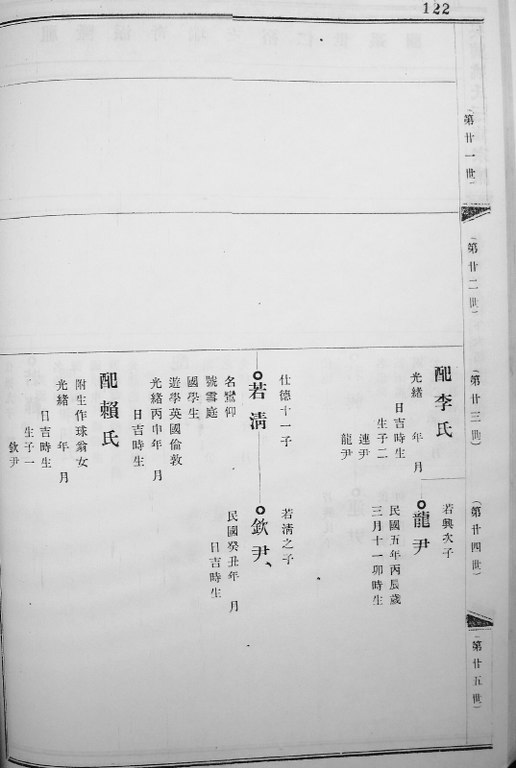 122
(第廿一世)
(第廿二世)
(第廿三世)
(第廿四世)
(第廿五世)
配李氏
光緒 年 月
日吉時生
生子二
連尹
龍尹
若興次子
龍尹
民國五年丙辰歲
三月十一卯時生
仕德十一子
若清
名鸞仰
號雪庭
國學生
遊學英國倫敦
光緒丙申年 月
日吉時生
若清之子
欽尹
民國癸丑年 月
日吉時生
配賴氏
附生作球翁女
光緒 年 月
日吉時生
生子一
欽尹